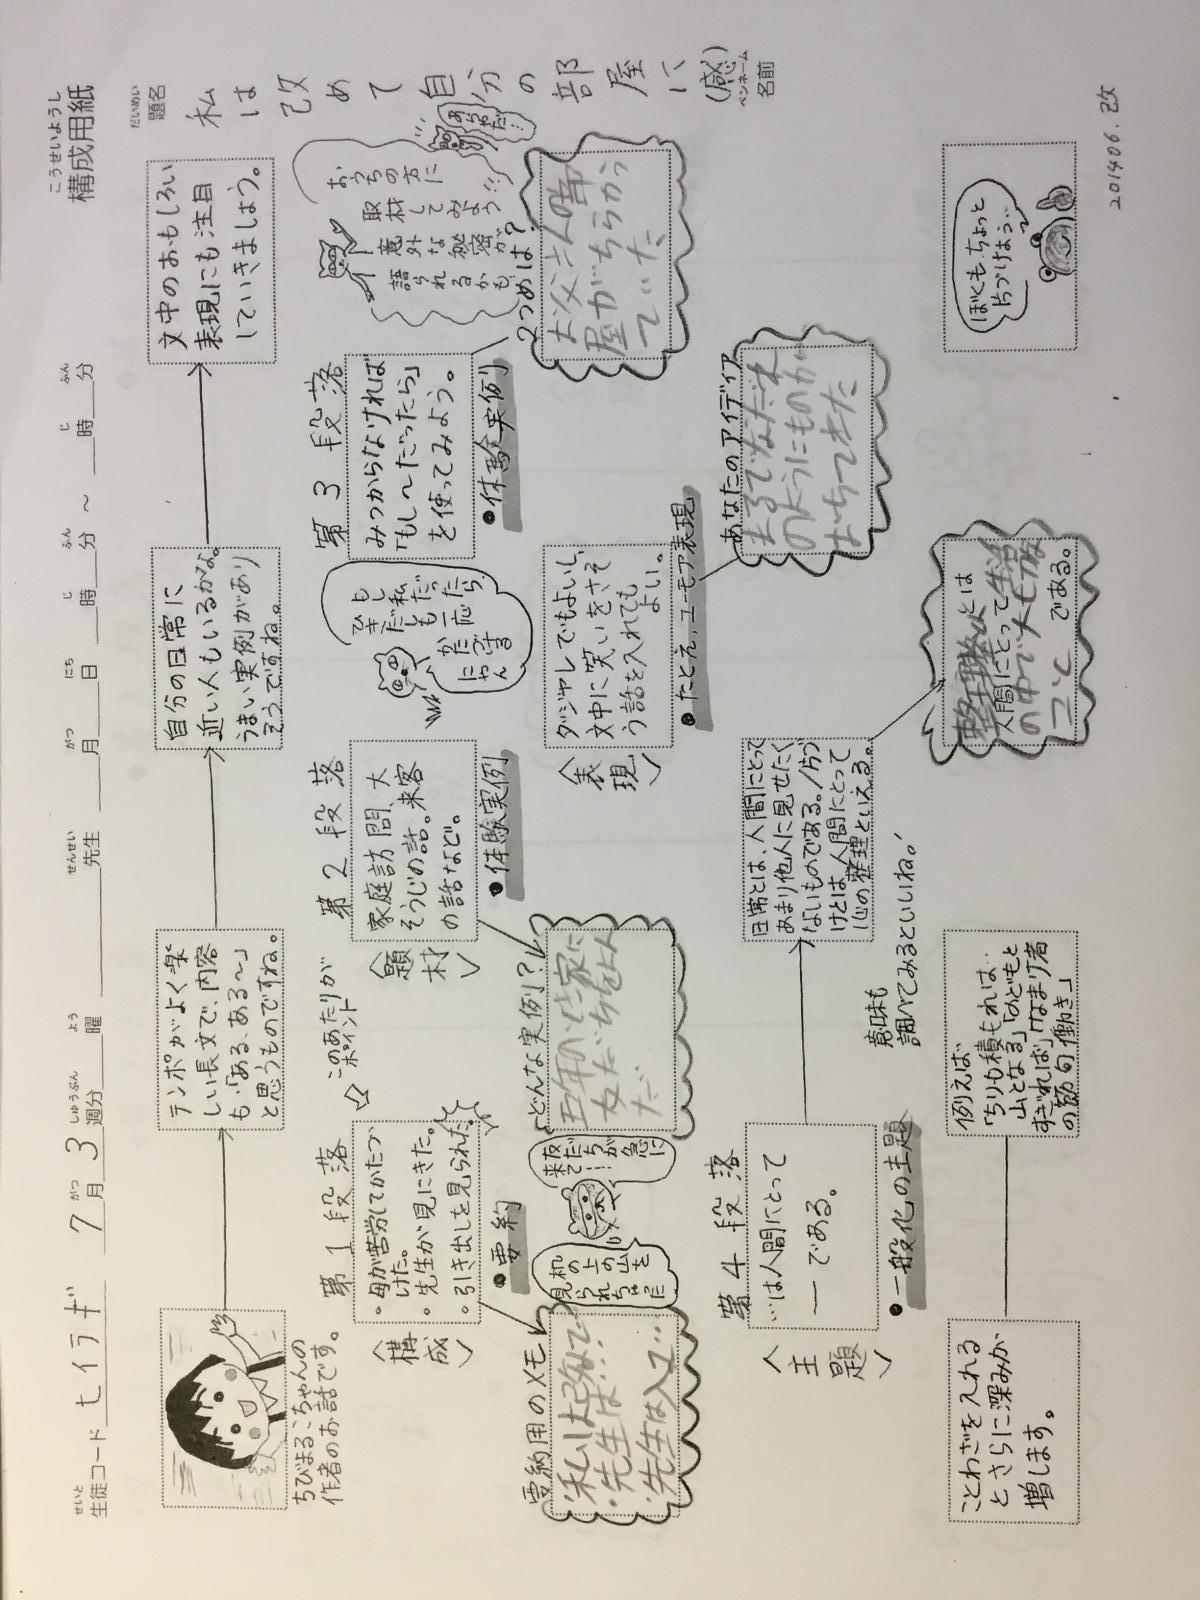 こうせいようし
構成用紙
せいと
生徒コード ヒイラギ 7月 3週分 曜 先生 月 日 時 分 ～ 時 分
がつ しゅうぶん よう せんせい がつ にち じ ふん じ ふん
だいめい
題名
私は改めて自分の部屋に(感)
ペンネーム
名前
ちびまるこちゃんの
作者のお話です。
テンポがよく楽
しい長文で、内容
も、「ある、ある～」
と思うものですね。
自分の日常に
近い人もいるかな。
うまい実例があり
そうですね。
文中のおもしろい
表現にも注目
していきましょう。
第1段落
〈構成〉
・母が苦労してかたづ
けた。
・先生が見にきた。
・引き出しを見られた。
●要約
このあたりが
ポイント
要約用のメモ
・先生は…
机の上の山を
見られちゃった
友だちが急に
来て…!
第2段落
〈題材〉
家庭訪問、大
そうじの話。来客
の話など。
●体験実例
どんな実例?
五年の時家に
もし私だったら
ひきだしも一応
かたづける
にゃん
第3段落
みつからなければ
「もし～だったら」
を使ってみよう。
●体験実例
2つめは?
お父さんの部
屋がちらかっ
ていた
おうちの方に
取材してみよう!!!
意外な秘密が
語られるかも
あらやだ…
〈表現〉
ダジャレでもよいし、
文中に笑いをさそ
う話を入れても
よい。
●たとえ、ユーモア表現
あなたのアイディア
まるでなだれ
のようにものが
おちてきた
第4段落
〈主題〉
…は人間にとって
― である。
●一般化の主題
日常とは、人間にとって
あまり他人に見せたく
ないものである。/片づ
けとは人間にとって
心の整理といえる。
整理整とんとは
人間にとって生活
の中で大切な
コト
である。
ことわざを入れる
とさらに深みが
増します。
例えば、
「ちりも積もれば‥
山となる」「のどもと
すぎれば」「なまけ者
の節句働き」
意味も
調べてみるといいね。
ぼくも、ちょっと
片づけよう…
201406.改